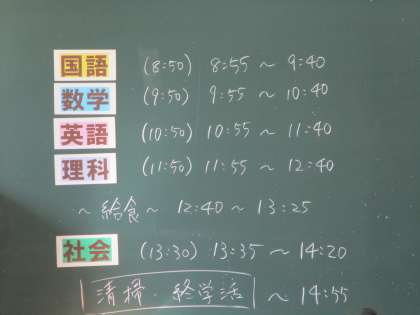 国語 (8:50) 8:55 ~ 9:40
数学 (9:50) 9:55 ~ 10:40
英語 (10:50) 10:55 ~ 11:40
理科 (11:50) 11:55 ~ 12:40
~ 給食 ~ 12:40 ~ 13:25
社会 (13:30) 13:35 ~ 14:20
清掃・終学活 ~ 14:55